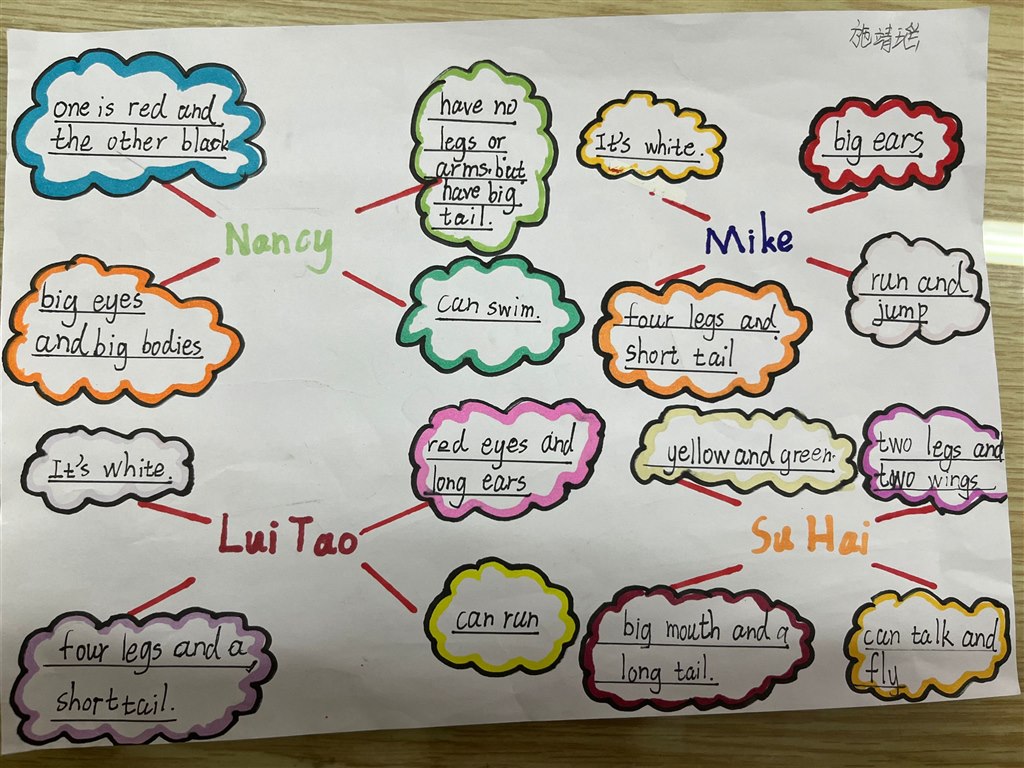 施靖瑶
one is red and
the other black
have no
legs or
arms.but
have big
tail.
Nancy
big eyes
and big bodies
can swim.
It's white.
big ears
Mike
four legs and
short tail
run and
jump
It's white.
red eyes and
long ears
Lui Tao
four legs and a
short tail.
can run
yellow and green.
two legs and
two wings
Su Hai
big mouth and a
long tail.
can talk and
fly